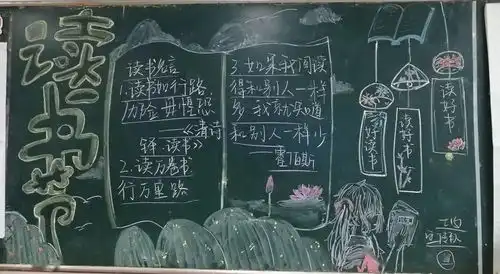 读书节
读书名言
1.读书如行路,
历险毋惶恐
——《清诗
铎·读书》
2.读万卷书
行万里路
3.如果我阅读
得和别人一样
多,我就知道
和别人一样少
——霍伯斯
好读书
读好书
读好书